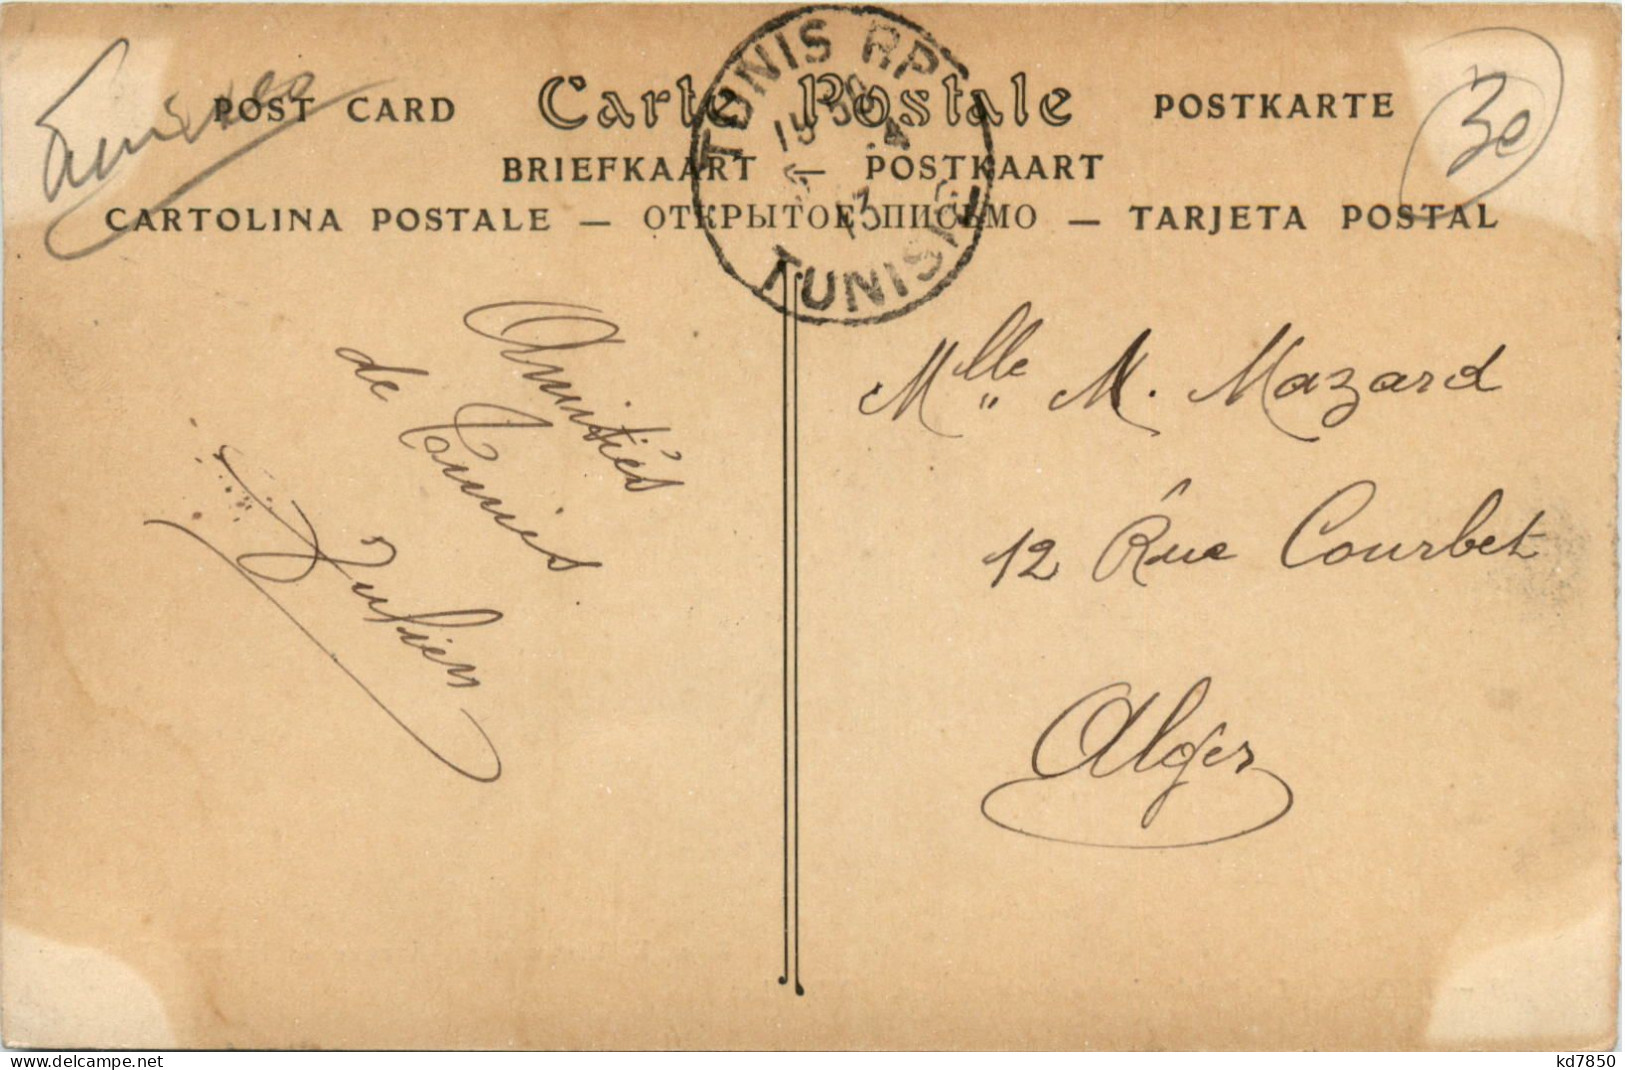 POST CARD Carte Postale POSTKARTE
BRIEFKAART — POSTKAART
CARTOLINA POSTALE — ОТКРЫТОЕ ПИСЬМО — TARJETA POSTAL
TUNIS RP
TUNISIE
3e
Amitiés
de Tunis
Julien
Mlle M. Mazard
12 Rue Courbet
Alger
delcampe.net
kd7850